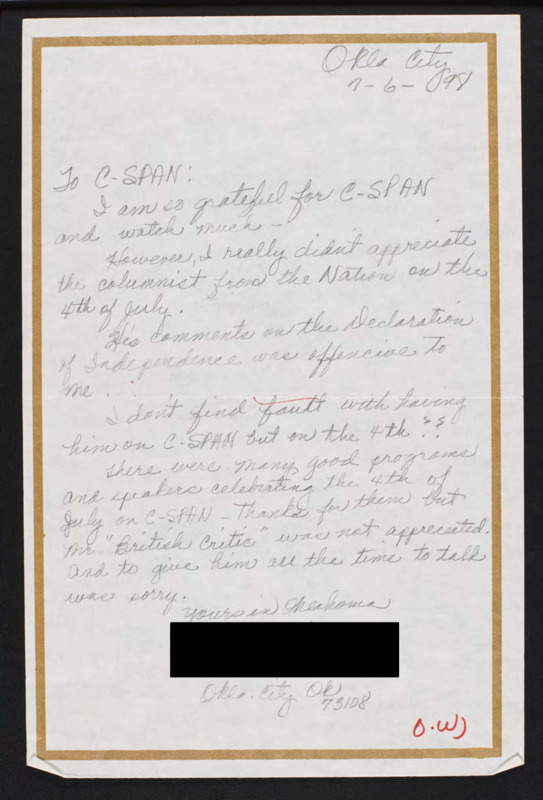 Okla City
7-6-98
To C-SPAN:
I am so grateful for C-SPAN
and watch much -
However, I really didn't appreciate
the columnist from the Nation on the
4th of July.
His comments on the Declaration
of Independence was offencive to
me.
I don't find fault with having
him on C-SPAN but on the 4th??
There were many good programs
and speakers celebrating the 4th of
July on C-SPAN - Thanks for them but
Mr "British Critic" was not appreciated.
And to give him all the time to talk
was sorry.
Yours in Oklahoma
Okla. City Ok
73108
O.W)